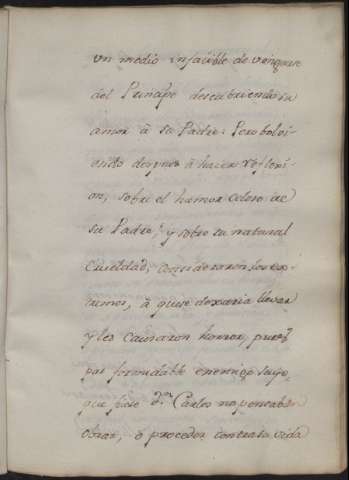 un medio infalible de vengarse
del Principe descubriendo su
amor à su Padre: Pero bolvi-
endo despues à hacer reflexi-
on, sobre el humor celoso de
su Padre, y sobre su natural
Crueldad, consideraron los ex-
tremos, à que se dexaria llevar
y les causaron horror, pues
por formidable enemigo suyo,
que fuese Dn. Carlos no pensaban
obrar, ò proceder contra su vida